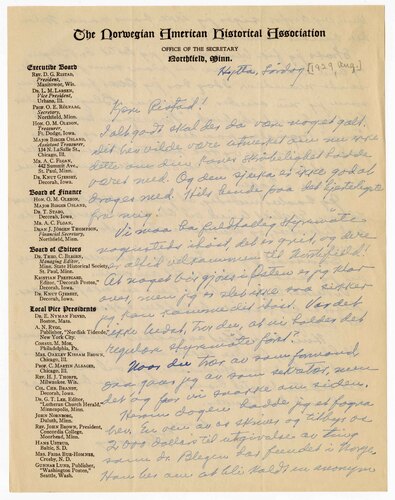 The Norwegian American Historical Association
OFFICE OF THE SECRETARY
Northfield, Minn.
Hytta, Lördag [1929 Aug.]
Executive Board
REV. D. G. RISTAD,
President,
Manitowoc, Wis.
DR. L. M. LARSEN,
Vice President,
Urbana, Ill.
PROF. O. E. RÖLVAAG,
Secretary,
Northfield, Minn.
HON. O. M. OLESON,
Treasurer,
Ft. Dodge, Iowa.
MAJOR BIRGER OSLAND,
Assistant Treasurer,
134 N. LaSalle St.,
Chicago, Ill.
MR. A. C. FLOAN,
442 Summit Ave.,
St. Paul, Minn.
DR. KNUT GJERSET,
Decorah, Iowa.
Board of Finance
HON. O. M. OLESON,
MAJOR BIRGER OSLAND,
DR. T. STABO,
Decorah, Iowa.
MR. A. C. FLOAN,
DEAN J. JÖRGEN THOMPSON,
Financial Secretary,
Northfield, Minn.
Board of Editors
DR. THEO. C. BLEGEN,
Managing Editor,
Minn. State Historical Society,
St. Paul, Minn.
KRISTIAN PRESTGARD,
Editor, "Decorah Posten,"
Decorah, Iowa.
DR. KNUT GJERSET,
Decorah, Iowa.
Local Vice Presidents
DR. E. NYMAN FIGVED,
Boston, Mass.
A. N. RYGG,
Publisher, "Nordisk Tidende,"
New York City.
CONSUL M. MOE,
Philadelphia, Pa.
MRS. OAKLEY KISSAM BROWN,
Chicago, Ill.
PROF. C. MARTIN ALSAGER,
Chicago, Ill.
REV. H. J. THORPE,
Milwaukee, Wis.
COL. CHR. BRANDT,
Decorah, Iowa.
DR. G. T. LEE, Editor
"Lutheran Church Herald,"
Minneapolis, Minn.
JOHN NORBORG,
Duluth, Minn.
REV. JOHN BROWN, President,
Concordia College,
Moorhead, Minn.
HANS USTRUD,
Baltic, S. D.
MRS. FRIDA BUE-HOMNES,
Crosby, N. D.
GUNNAR LUND, Publisher,
"Washington Posten,"
Seattle, Wash.
Kjære Ristad!
I alt godt skal der da være noget galt.
det bevilde være utmerket om nu ikke
dette om din kones skrøbelighet hadde
været med. Og den sjuka er ikke god at
drages med. Hils hende paa det hjerteligste
fra mig!
Vi maa ha fuldtallig styremøte
nogensteds ihøst, det er greit, og dere
er altid velkommen til Northfield!
At noget bør gjøres i Østen er jeg klar
over, men jeg er slet ikke saa sikker
jeg kan komme dit ihøst. Var det
ikke bedst, tror du, at vi holder det
regulære styremøte först?
Naar du trær av som formand
saa gaar jeg av som sekretær, men
det og faar vi snakke om siden.
Herom dagen hadde jeg et fograa
brev. En ven av os skriver og tilbyr os
2,000 dollars til utgivelse av ting
som dr. Blegen har fundet i Norge.
Han ber om at bli holdt en anonym